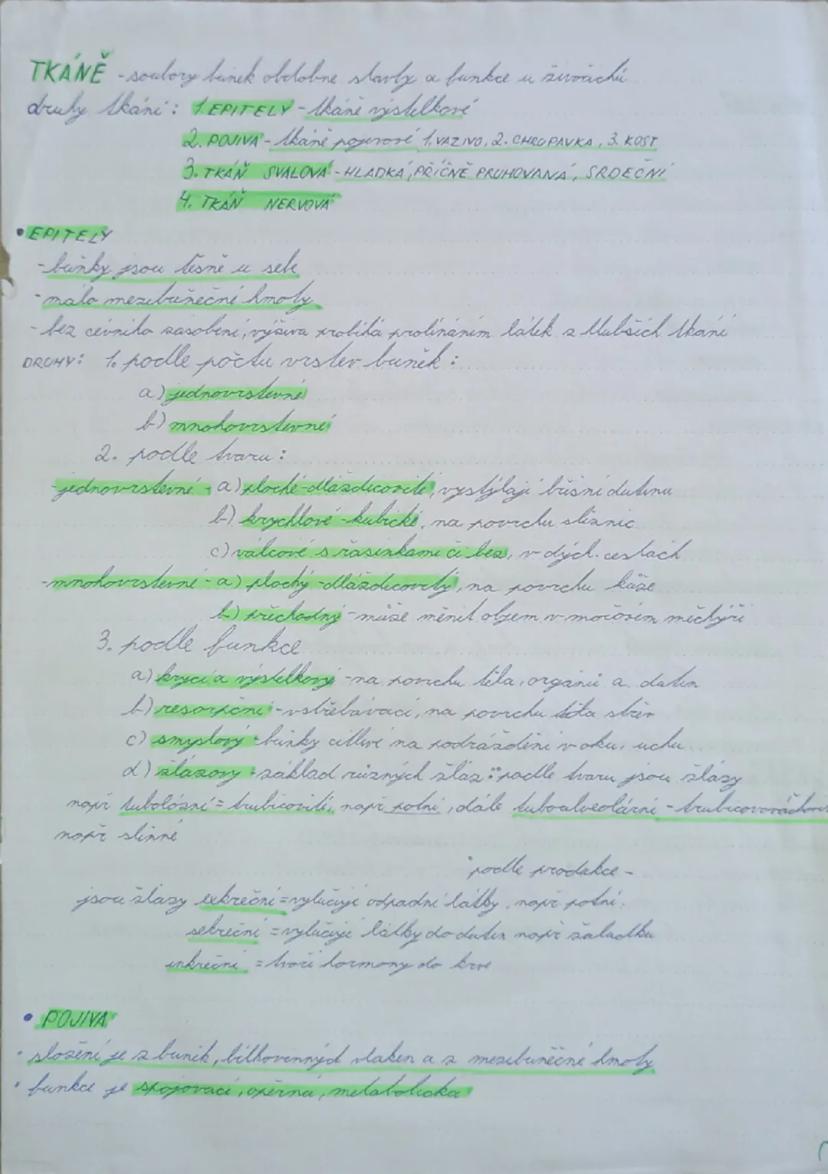 TKÁNĚ - soubory buněk obdobné stavby a funkce u živočichů
druhy tkání: 1. EPITELY - tkáně výstelkové
2. POJIVA - tkáně pojivové 1. VAZIVO, 2. CHRUPAVKA, 3. KOST
3. TKÁŇ SVALOVÁ - HLADKÁ, PŘÍČNĚ PRUHOVANÁ, SRDEČNÍ
4. TKÁŇ NERVOVÁ
• EPITELY
- buňky jsou těsně u sebe
- málo mezibuněčné hmoty
- bez cévního zásobení, výživa probíhá prolínáním látek z hlubších tkání
DRUHY: 1. podle počtu vrstev buněk:
a) jednovrstevné
b) mnohovrstevné
2. podle tvaru:
- jednovrstevné - a) ploché - dlaždicovité, vystýlají břišní dutinu
b) krychlové - kubické, na povrchu sliznic
c) válcové s řasinkami či bez, v dých. cestách
- mnohovrstevné - a) plochý - dlaždicovitý, na povrchu kůže
b) přechodný - může měnit objem v močovém měchýři
3. podle funkce
a) krycí a výstelkový - na povrchu těla, orgánů a dutin
b) resorpční - vstřebávací, na povrchu těla střev
c) smyslový - buňky citlivé na podráždění v oku, uchu
d) žlázový - základ různých žláz: • podle tvaru jsou žlázy
např tubolózní = trubicovité, např potní, dále tuboalveolární - trubicovováčkové
např slinné
• podle produkce -
jsou žlázy exkreční = vylučuje odpadní látky, např potní.
sekreční = vylučuje látky do dutin např žaludku
inkreční = tvoří hormony do krve
• POJIVA
• složení je z buněk, bílkovinných vláken a z mezibuněčné hmoty
• funkce je spojovací, opěrná, metabolická